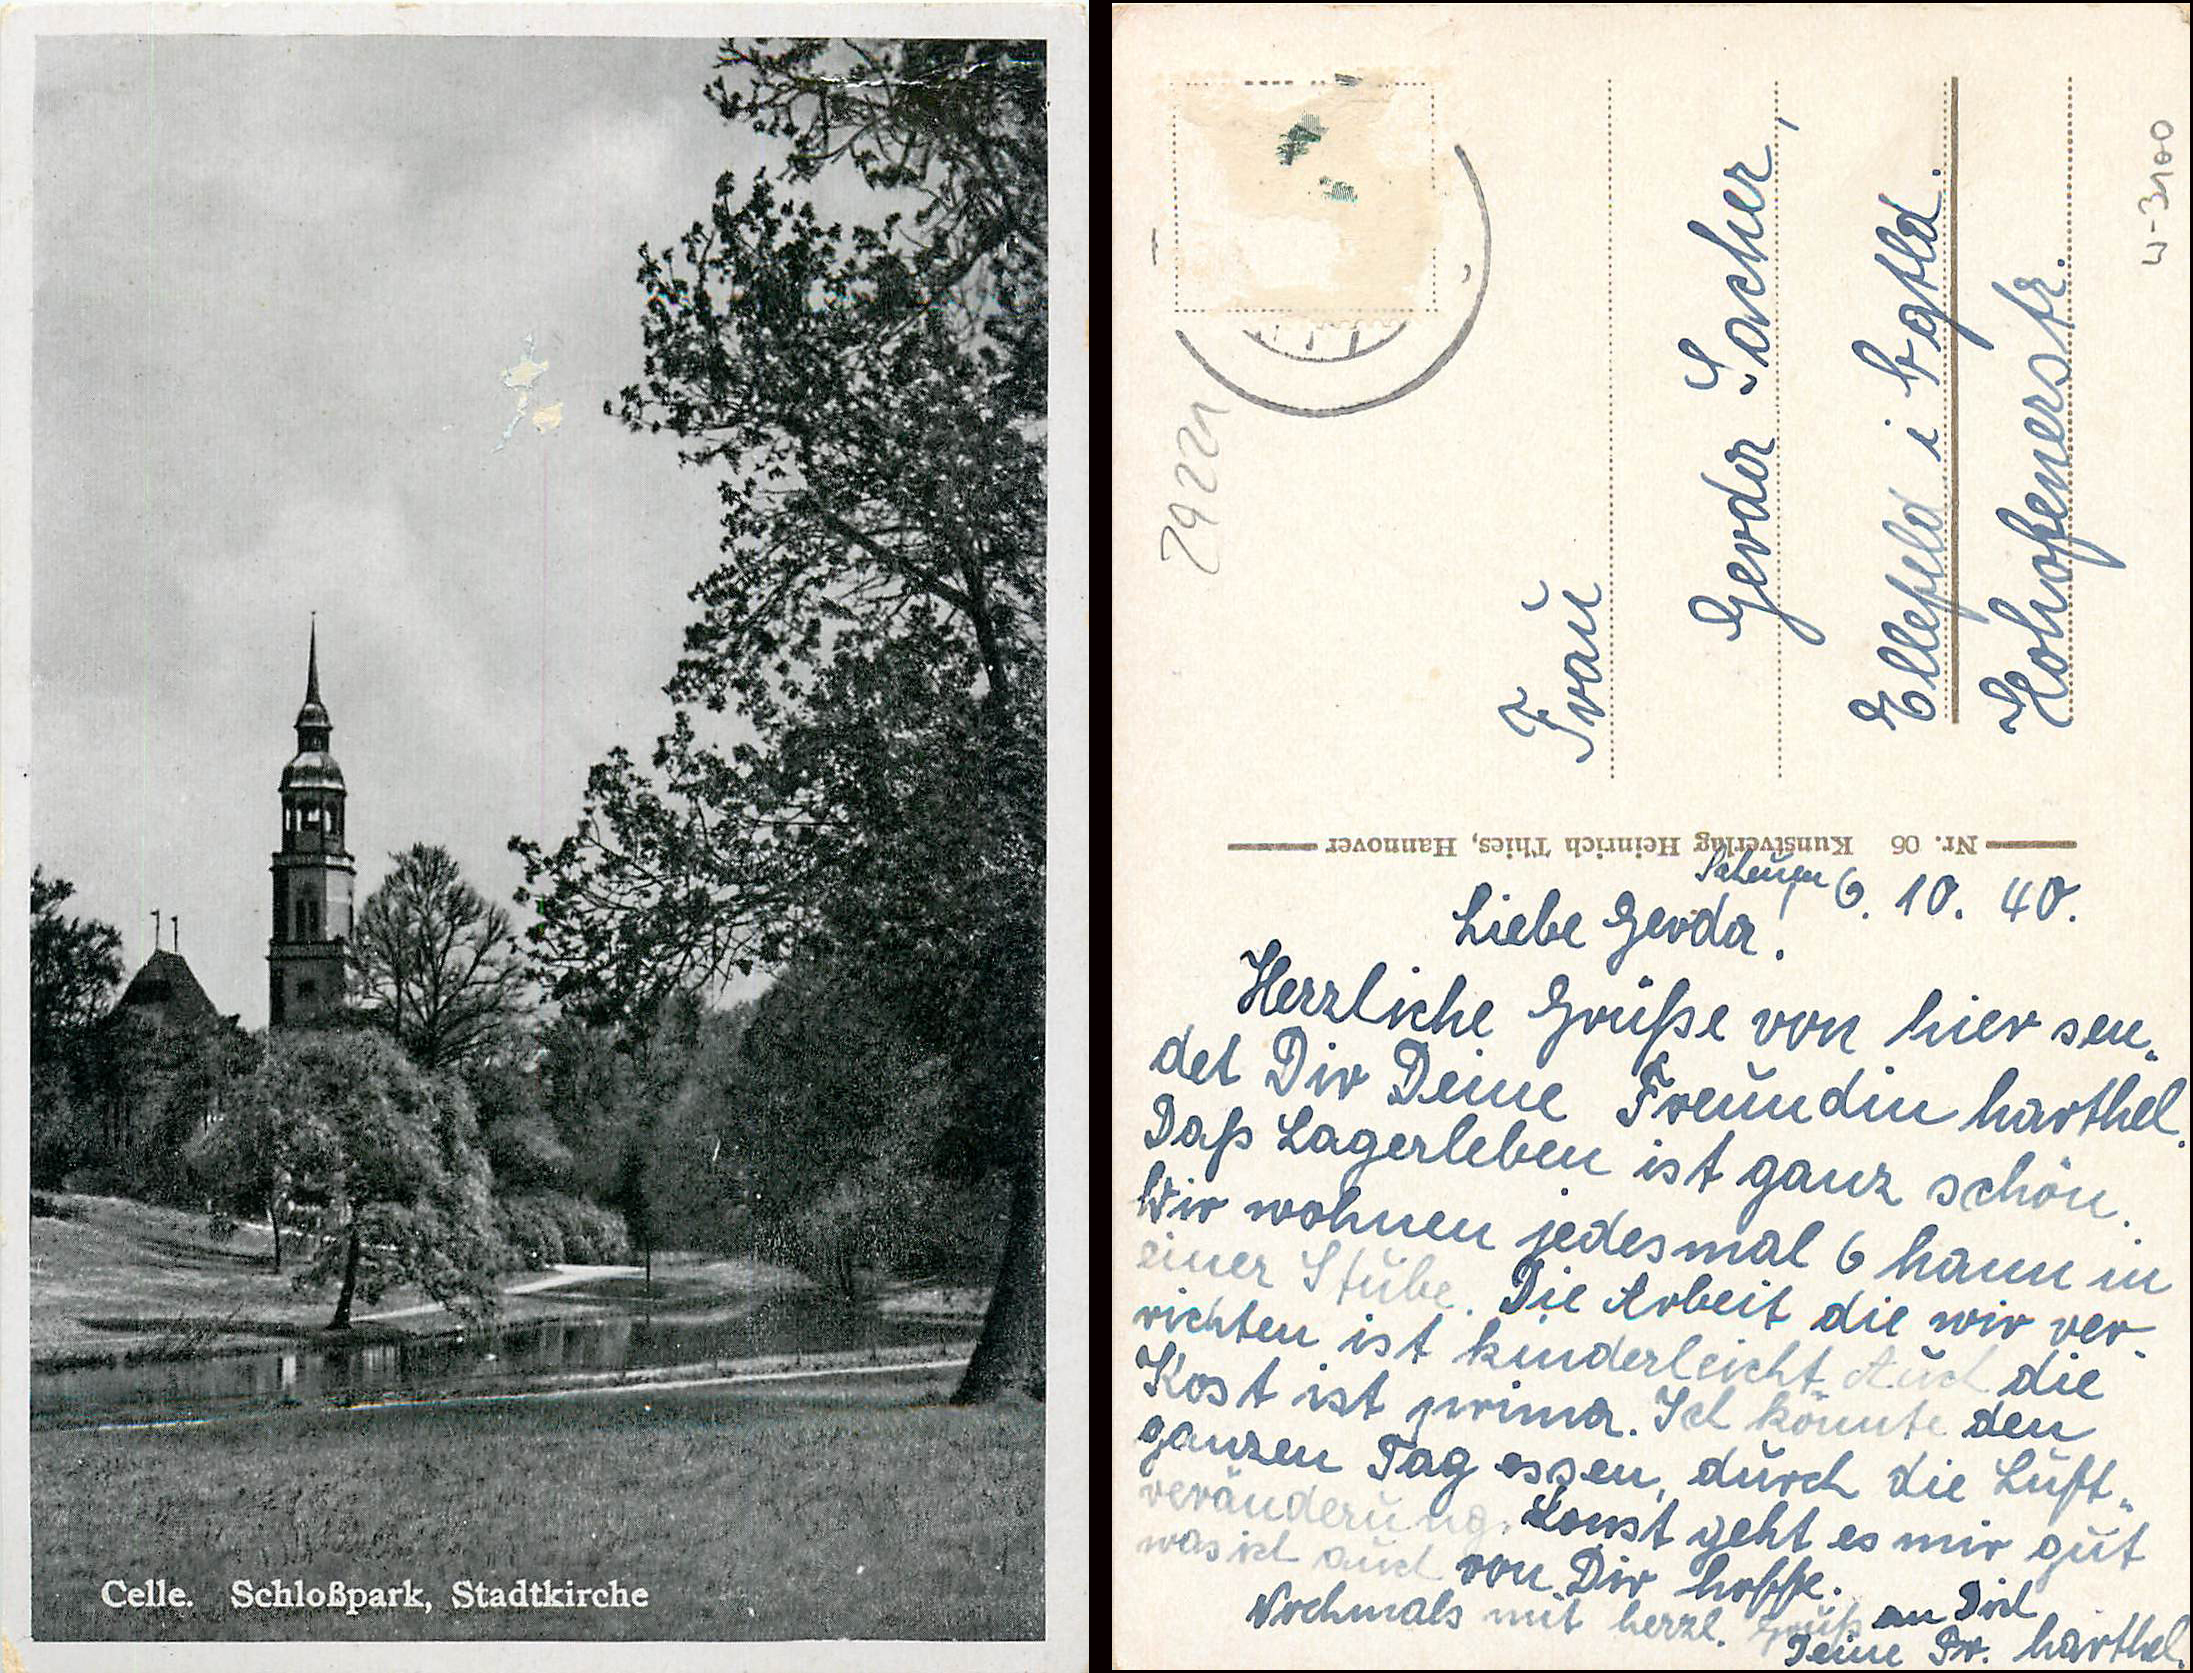 Celle. Schloßpark, Stadtkirche
29221
Frau
Gerda Locher,
Ellefeld i Vgtld.
Hohofenerstr.
W-3100
Nr. 06 Kunstverlag Heinrich Thies, Hannover
Scheuen 6. 10. 40.
Liebe Gerda!
Herzliche Grüße von hier sen-
det Dir Deine Freundin Marthel.
Daß Lagerleben ist ganz schön.
Wir wohnen jedesmal 6 Mann in
einer Stube. Die Arbeit die wir ver-
richten ist kinderleicht. Auch die
Kost ist prima. Ich könnte den
ganzen Tag essen, durch die Luft-
veränderung. Sonst geht es mir gut
was ich auch von Dir hoffe.
Nochmals mit herzl. Gruß an Dich
Deine Fr. Marthel.